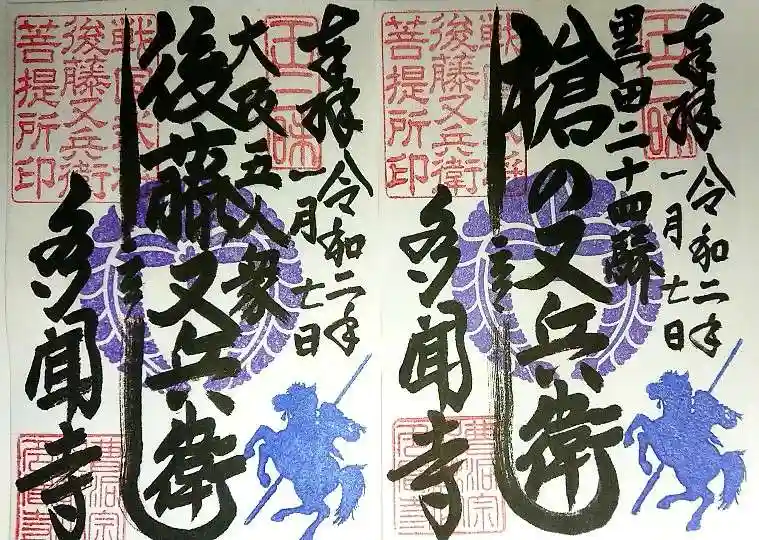 奉拝
令和二年
一月七日
黒田二十四騎
槍の又兵衛
多聞寺
後藤又兵衛
菩提所印
曹洞宗
奉拝
令和二年
一月七日
大阪五人衆
後藤又兵衛
多聞寺
後藤又兵衛
菩提所印
曹洞宗